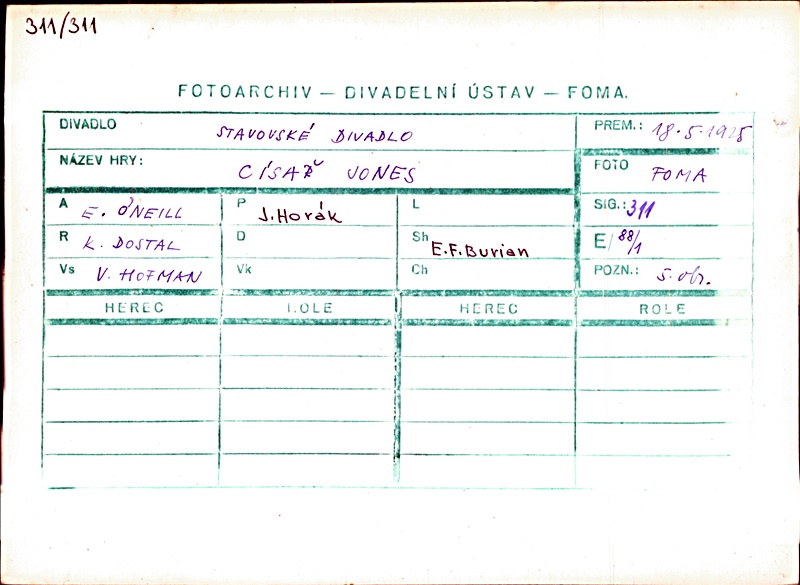 311/311
FOTOARCHIV — DIVADELNÍ ÚSTAV — FOMA.
DIVADLO STAVOVSKÉ DIVADLO PREM.: 18.5.1925
NÁZEV HRY: CÍSAŘ JONES FOTO FOMA
A E. O'NEILL P J. Horák L SIG.: 311
R K. DOSTAL D Sh E.F. Burian E/ 88/1
Vs V. HOFMAN Vk Ch POZN.: 5. obr.
HEREC ROLE HEREC ROLE